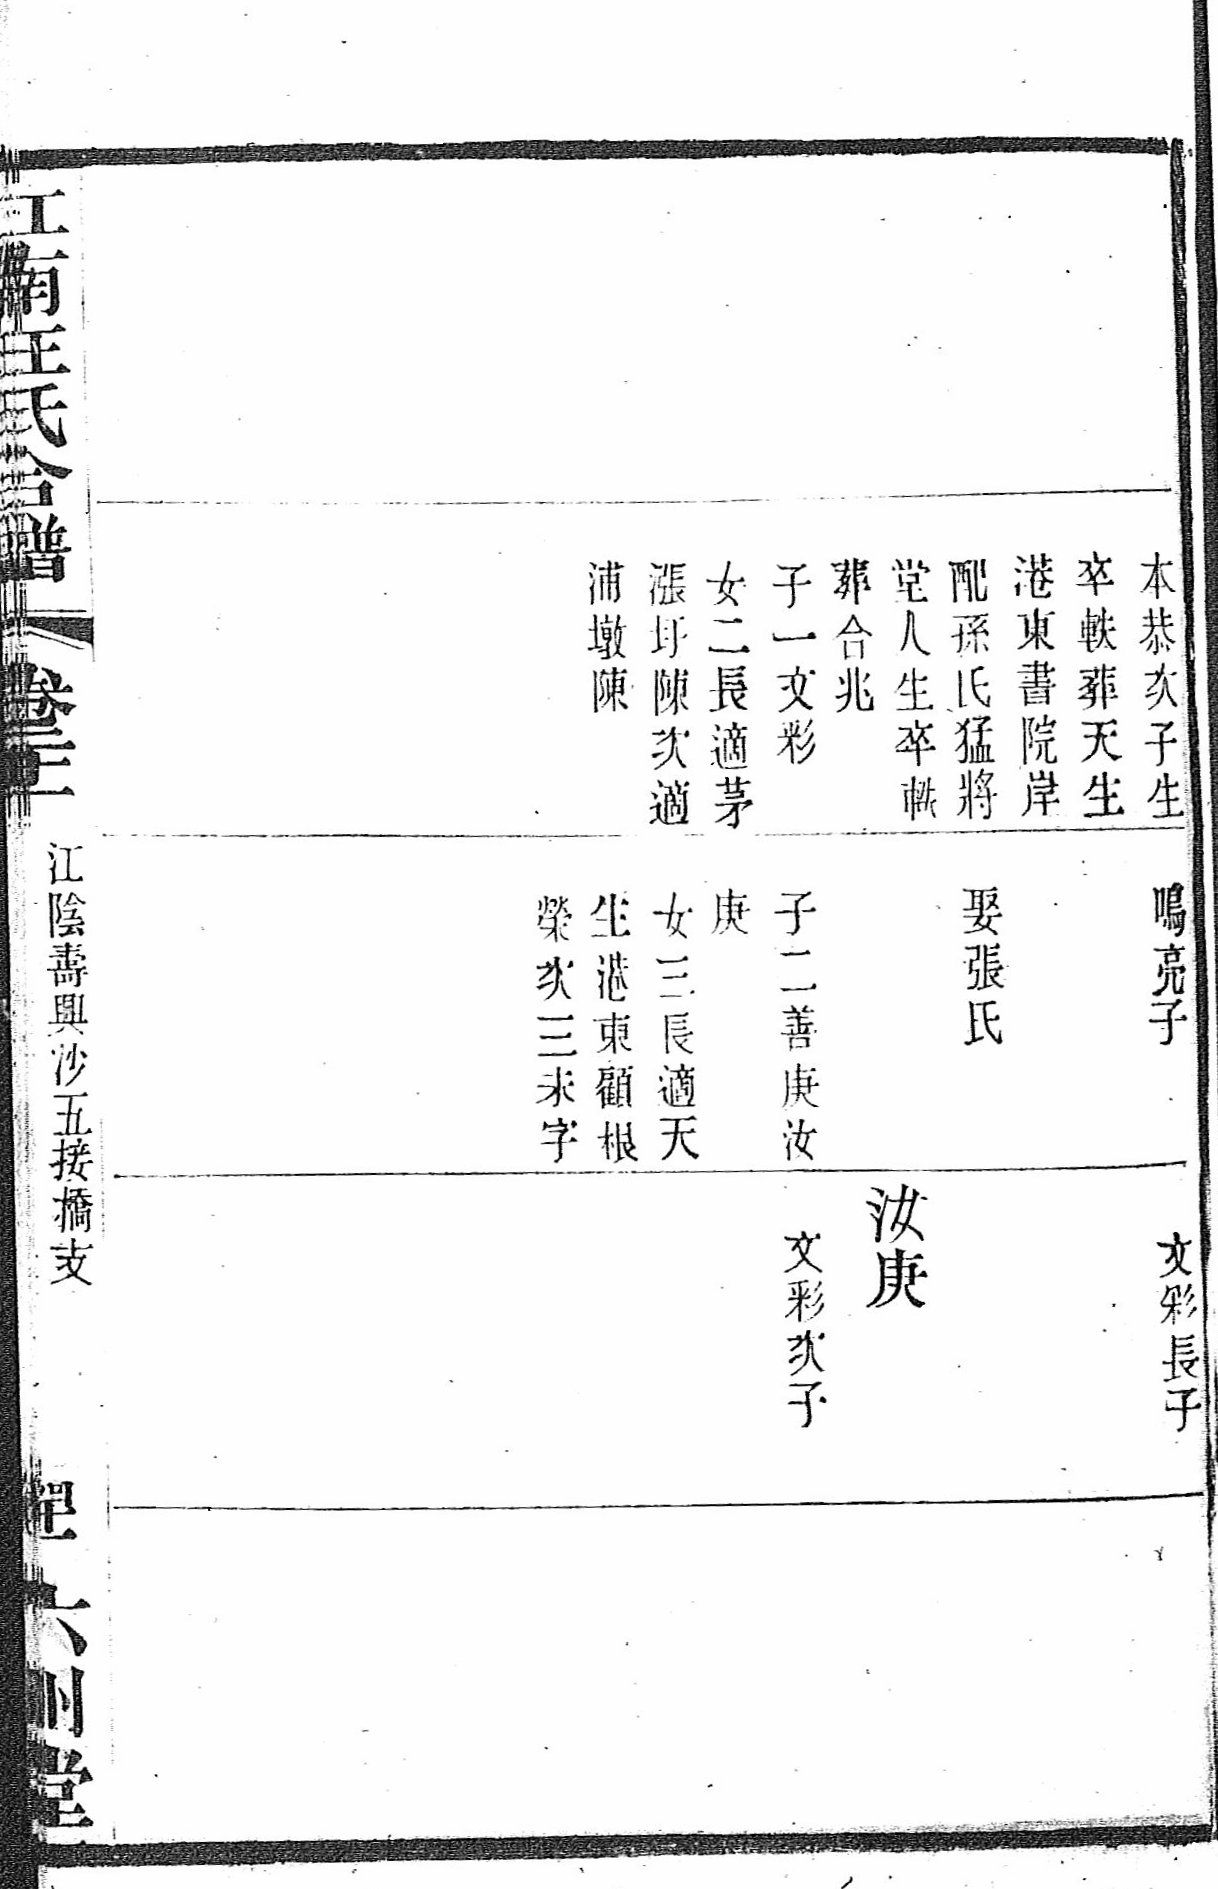 本恭次子生
卒軼葬天生
港東書院岸
配孫氏猛將
堂人生卒軼
葬合兆
子一文彩
女二長適茅
漲圩陳次適
浦墩陳
鳴亮子
娶張氏
子二善庚汝
庚
女三長適天
生港東顧根
榮次三未字
文彩長子
汝庚
文彩次子
江南汪氏合譜
卷二
江陰壽興沙五接橋支
六州堂